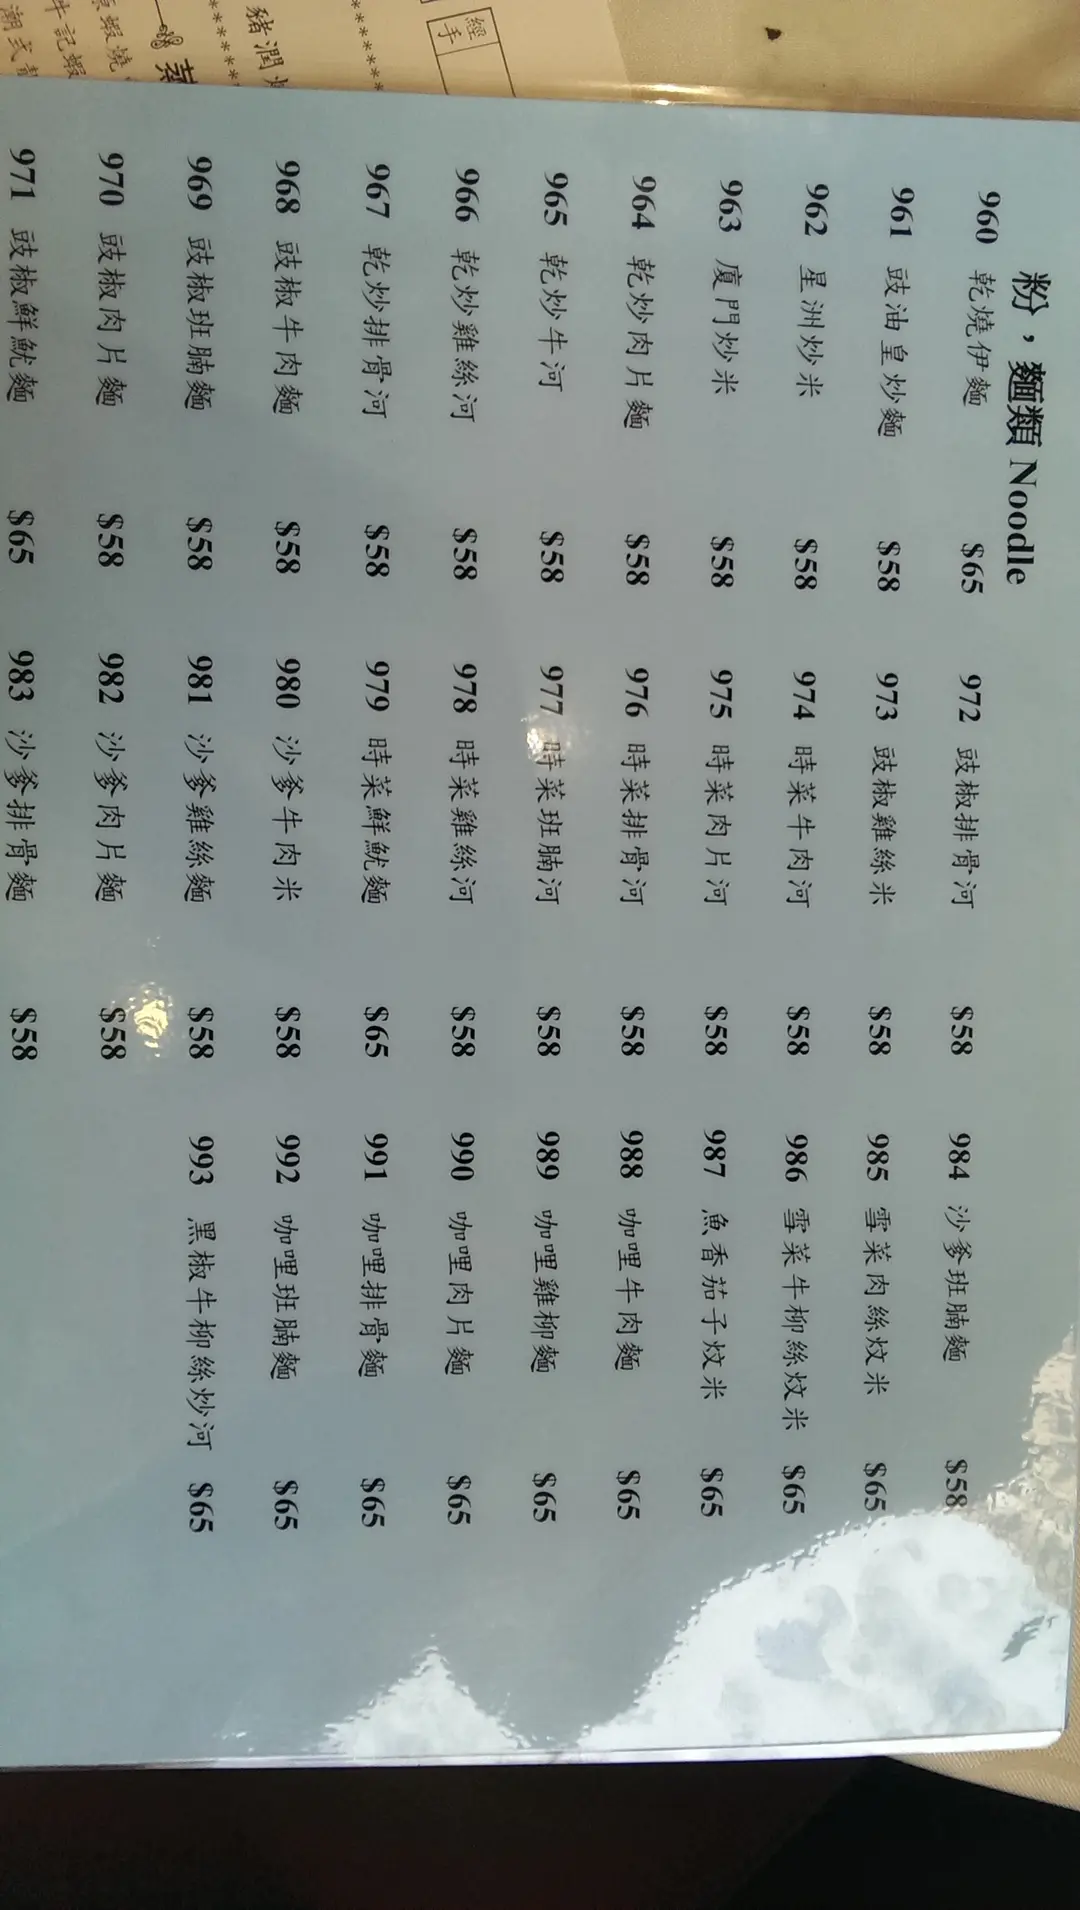 粉，麵類 Noodle
960 乾燒伊麵 $65
961 豉油皇炒麵 $58
962 星洲炒米 $58
963 廈門炒米 $58
964 乾炒肉片麵 $58
965 乾炒牛河 $58
966 乾炒雞絲河 $58
967 乾炒排骨河 $58
968 豉椒牛肉麵 $58
969 豉椒班腩麵 $58
970 豉椒肉片麵 $58
971 豉椒鮮魷麵 $65
972 豉椒排骨河 $58
973 豉椒雞絲米 $58
974 時菜牛肉河 $58
975 時菜肉片河 $58
976 時菜排骨河 $58
977 時菜班腩河 $58
978 時菜雞絲河 $58
979 時菜鮮魷麵 $65
980 沙爹牛肉米 $58
981 沙爹雞絲麵 $58
982 沙爹肉片麵 $58
983 沙爹排骨麵 $58
984 沙爹班腩麵 $58
985 雪菜肉絲炆米 $65
986 雪菜牛柳絲炆米 $65
987 魚香茄子炆米 $65
988 咖哩牛肉麵 $65
989 咖哩雞柳麵 $65
990 咖哩肉片麵 $65
991 咖哩排骨麵 $65
992 咖哩班腩麵 $65
993 黑椒牛柳絲炒河 $65
經手
豬潤
蒸
牛記蝦
潮式